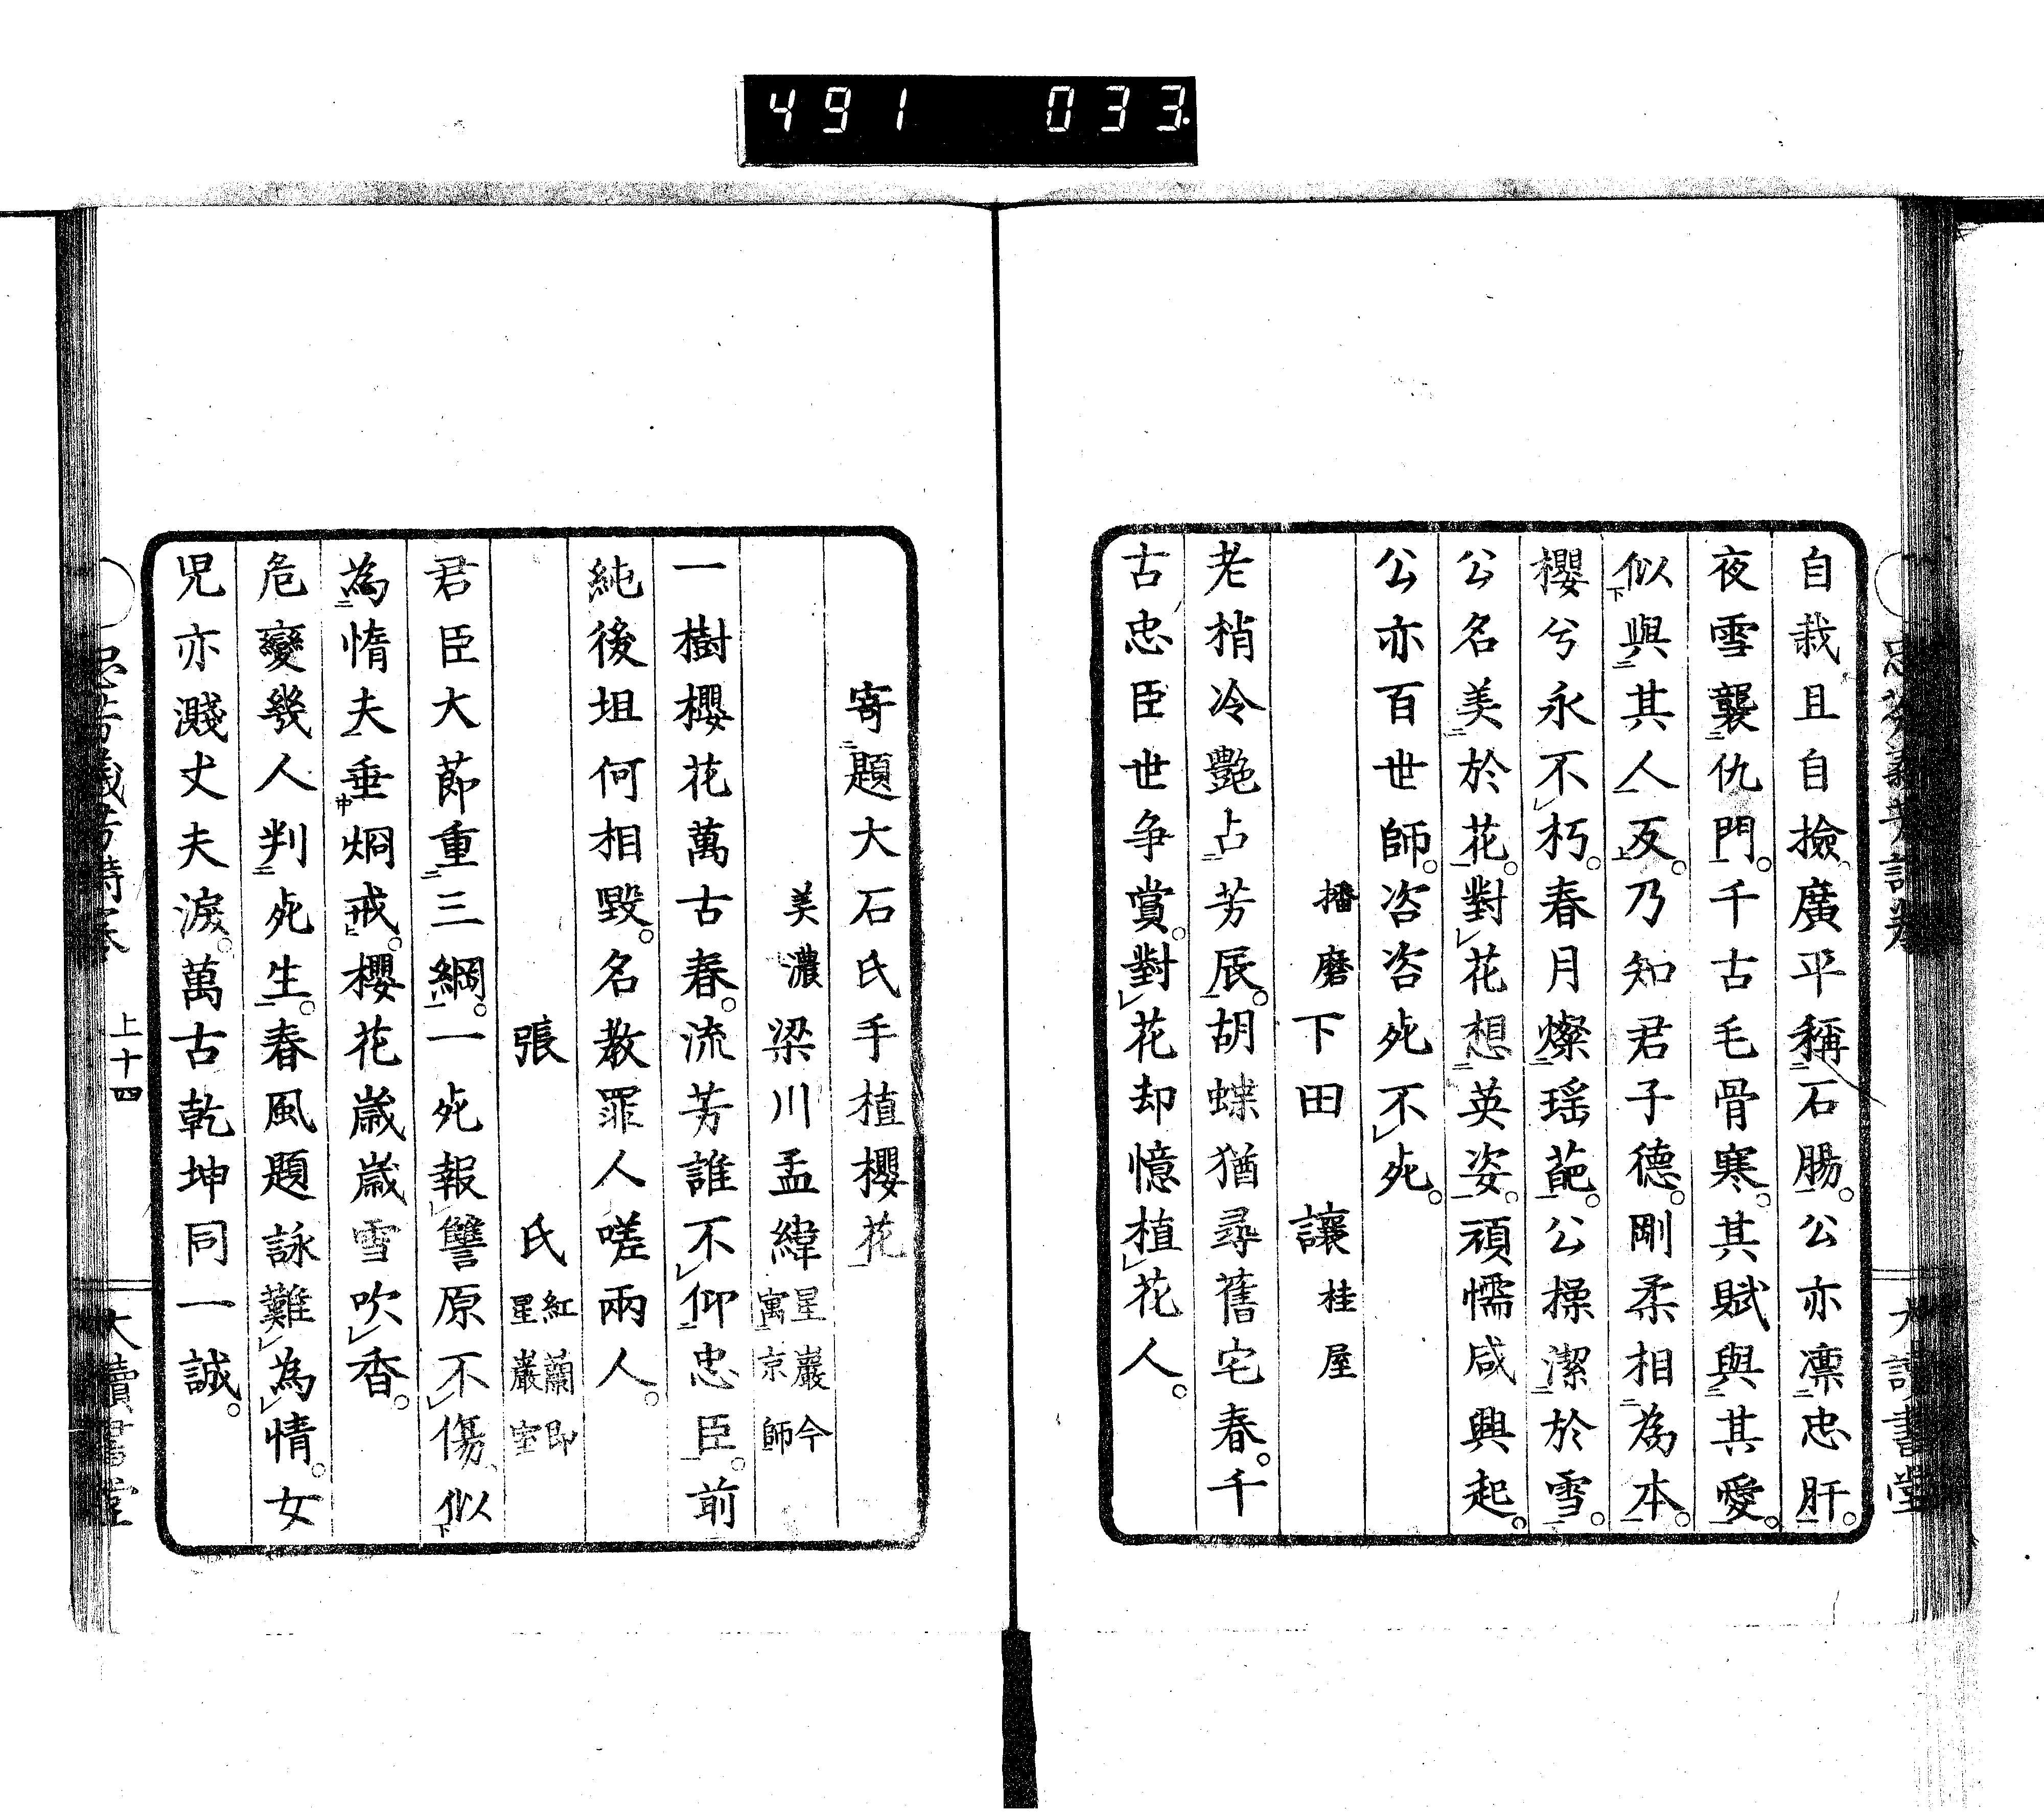 491 033
自栽且自撿廣平稱石腸公亦凛忠肝
夜雪襲仇門千古毛骨寒其賦與其愛
似與其人反乃知君子德剛柔相為本
櫻兮永不朽春月燦瑶葩公操潔於雪
公名美於花對花想英姿頑懦咸興起
公亦百世師咨咨死不死
播磨下田 讓桂屋
老梢冷艷占芳辰胡蝶猶尋舊宅春千
古忠臣世争賞對花却憶植花人
寄題大石氏手植櫻花
美濃 梁川孟緯星巖今寓京師
一樹櫻花萬古春流芳誰不仰忠臣前
純後坦何相毀名教罪人嗟兩人
張 氏紅蘭即星巖室
君臣大節重三綱一死報讐原不傷似
為惰夫垂烱戒櫻花歳歳雪吹香
危變幾人判死生春風題詠難為情女
児亦濺丈夫淚萬古乾坤同一誠
上十四